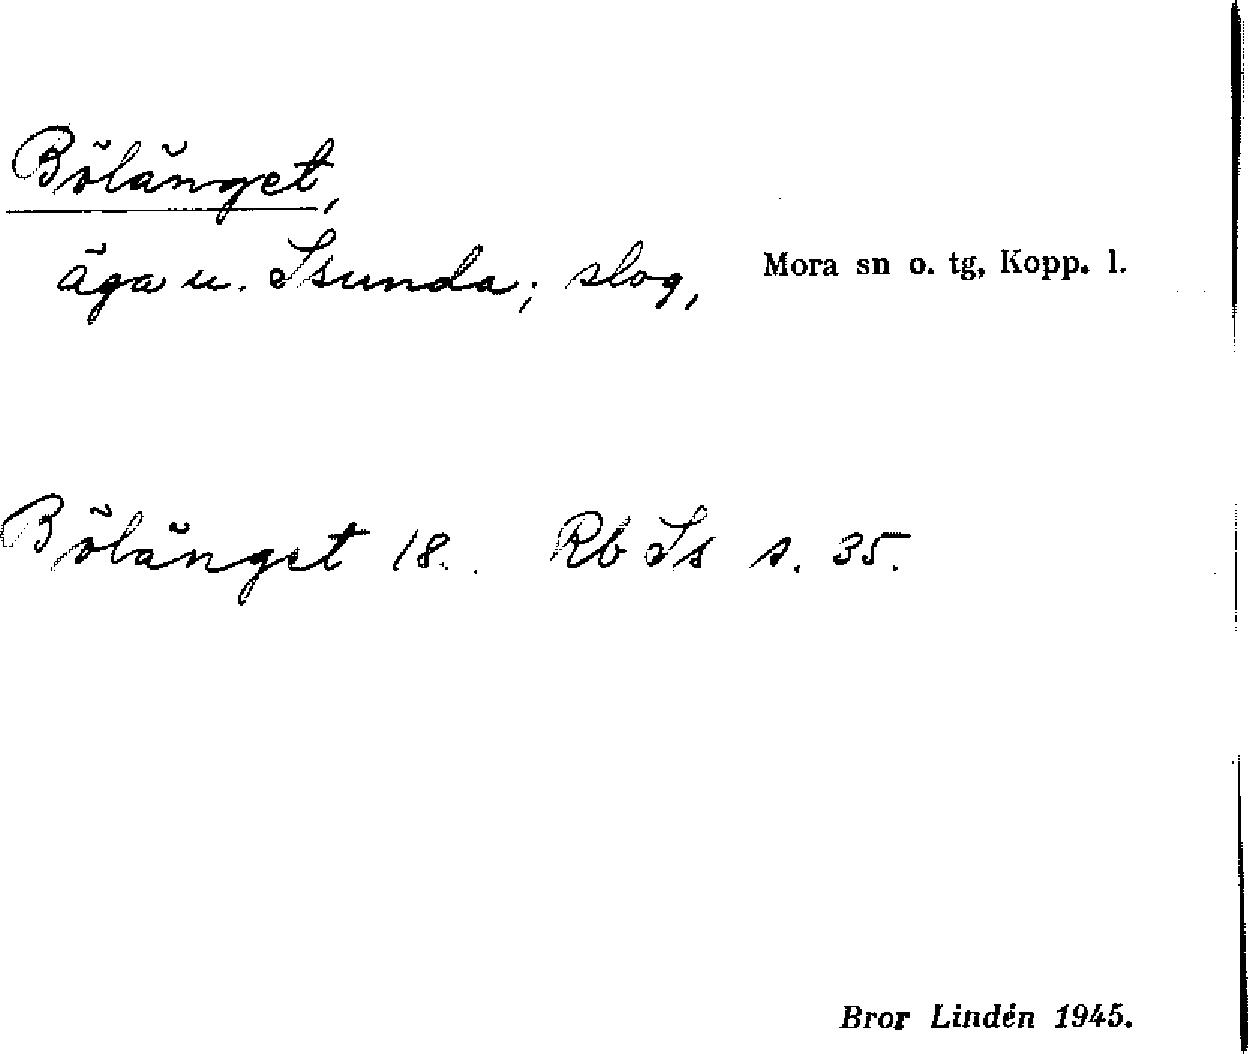 Bölänget,
äga u. Isunda; slog, Mora sn o. tg, Kopp. l.
Bölänget 18.. Rb Is s. 35.
Bror Lindén 1945.